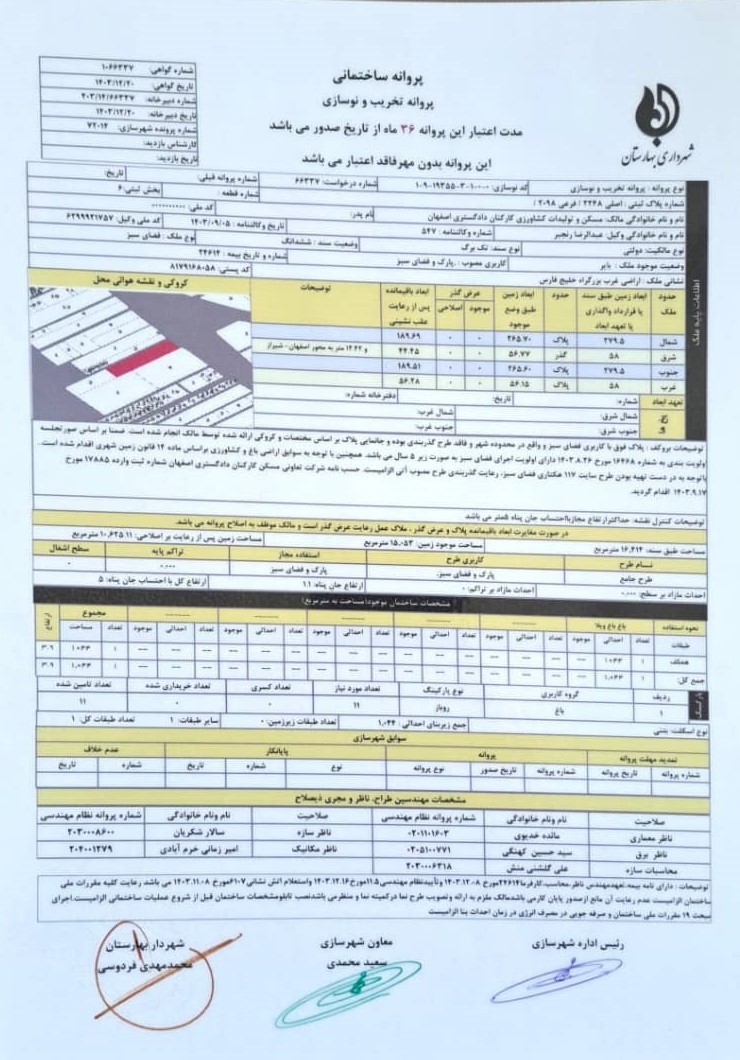 پروانه ساختمانی
پروانه تخریب و نوسازی
مدت اعتبار این پروانه ۳۶ ماه از تاریخ صدور می باشد
این پروانه بدون مهر فاقد اعتبار می باشد
شهرداری بهارستان
شماره گواهی: ۱۰۶۶۳۳۷
تاریخ گواهی: ۱۴۰۳/۱۲/۲۰
شماره دبیرخانه: ۴۰۳/۱۴/۶۶۳۳۷
تاریخ دبیرخانه: ۱۴۰۳/۱۲/۲۰
شماره پرونده شهرسازی: ۷۲۰۱۴
کارشناس بازدید:
تاریخ بازدید:
نوع پروانه : پروانه تخریب و نوسازی
شماره درخواست: ۶۶۳۳۷ شماره پروانه قبلی: تاریخ:
شماره پلاک ثبتی : اصلی ۲۲۴۸ / فرعی ۲۰۹۸ / شماره قطعه : بخش ثبتی: ۶
نام و نام خانوادگی مالک: مسکن و تولیدات کشاورزی کارکنان دادگستری اصفهان نام پدر: کد ملی:
نام و نام خانوادگی وکیل: عبدالرضا رنجبر شماره وکالتنامه: ۵۴۷ تاریخ وکالتنامه: ۱۴۰۳/۰۹/۰۵ کد ملی وکیل: ۶۲۹۹۹۲۱۷۵۷
نوع مالکیت: دولتی نوع سند: تک برگ وضعیت سند: ششدانگ نوع ملک : فضای سبز
وضعیت موجود ملک : بایر کاربری مصوب : .پارک و فضای سبز شماره و تاریخ بیمه: ۲۴۶۱۴
نشانی ملک : اراضی غرب بزرگراه خلیج فارس کد پستی: ۸۱۷۹۱۶۸۰۵۸
اطلاعات پایه ملک
حدود ملک ابعاد زمین طبق سند یا قرارداد واگذاری یا تعهد ابعاد حدود ابعاد زمین طبق وضع موجود عرض گذر موجود اصلاحی ابعاد باقیمانده پس از رعایت عقب نشینی توضیحات کروکی و نقشه هوائی محل
شمال ۲۷۹.۵ پلاک ۲۶۵.۷۰ ۰ ۰ ۱۸۹.۶۹
شرق ۵۸ گذر ۵۶.۷۷ ۰ ۰ ۴۴.۴۵ و ۱۴.۶۲ متر به محور اصفهان - شیراز
جنوب ۲۷۹.۵ پلاک ۲۶۵.۶۰ ۰ ۰ ۱۸۹.۵۱
غرب ۵۸ پلاک ۵۶.۱۵ ۰ ۰ ۵۶.۲۸
تعهد ابعاد شماره: تاریخ: دفترخانه شماره:
شمال شرق: شمال غرب:
جنوب شرق: جنوب غرب:
توضیحات بروکف : پلاک فوق با کاربری فضای سبز و واقع در محدوده شهر و فاقد طرح گذربندی بوده و جانمایی پلاک بر اساس مختصات و کروکی ارائه شده توسط مالک انجام شده است. ضمنا بر اساس صورتجلسه
اولویت بندی به شماره ۱۶۴۶۸ مورخ ۱۴۰۳.۸.۲۶ دارای اولویت اجرای فضای سبز به صورت زیر ۵ سال می باشد. همچنین با توجه به سوابق اراضی باغ و کشاورزی براساس ماده ۱۴ قانون زمین شهری اقدام شده است.
باتوجه به در دست تهیه بودن طرح سایت ۱۱۷ هکتاری فضای سبز، رعایت گذربندی طرح مصوب آتی الزامیست. حسب نامه شرکت تعاونی مسکن کارکنان دادگستری اصفهان شماره ثبت وارده ۱۷۸۸۵ مورخ
۱۴۰۳.۹.۱۷ اقدام گردید.
توضیحات کنترل نقشه: حداکثر ارتفاع مجاز با احتساب جان پناه ۵متر می باشد
در صورت مغایرت ابعاد باقیمانده پلاک و عرض گذر ، ملاک عمل رعایت عرض گذر است و مالک موظف به اصلاح پروانه می باشد.
مساحت طبق سند: ۱۶,۲۱۴ مترمربع مساحت موجود زمین: ۱۵,۰۵۳ مترمربع مساحت زمین پس از رعایت بر اصلاحی: ۱۰,۶۲۵.۱۱ مترمربع
نام طرح کاربری طرح استفاده مجاز تراکم پایه سطح اشغال
طرح جامع پارک و فضای سبز. پارک و فضای سبز ۰,۰۰۰ ۰
احداث مازاد بر سطح: ۰,۰۰۰ احداث مازاد بر تراکم: ۰ ارتفاع جان پناه: ۱.۱ ارتفاع کل با احتساب جان پناه: ۵
مشخصات ساختمان موجود(مساحت به مترمربع)
نحوه استفاده باغ باغ ویلا مجموع ارتفاع
طبقات تعداد احداثی موجود تعداد احداثی موجود تعداد احداثی موجود تعداد احداثی موجود تعداد احداثی موجود تعداد مساحت
همکف ۱ ۱۰۴۴ ۱ ۱۰۴۴ ۳.۹
جمع کل: ۱ ۱,۰۴۴ ۱ ۱,۰۴۴ ۳.۹
پارکینگ
ردیف گروه کاربری نوع پارکینگ تعداد مورد نیاز تعداد کسری تعداد خریداری شده تعداد تامین شده
۱ باغ روباز ۱۱ ۰ ۰ ۱۱
نوع اسکلت: بتنی جمع زیربنای احداثی : ۱,۰۴۴ تعداد طبقات زیرزمین: ۰ سایر طبقات: ۱ تعداد طبقات کل: ۱
سوابق شهرسازی
تمدید مهلت پروانه پروانه پایانکار عدم خلاف
شماره پروانه تاریخ پروانه شماره پروانه تاریخ صدور نوع پروانه نوع شماره تاریخ شماره تاریخ
مشخصات مهندسین طراح، ناظر و مجری ذیصلاح
صلاحیت نام ونام خانوادگی شماره پروانه نظام مهندسی صلاحیت نام ونام خانوادگی شماره پروانه نظام مهندسی
ناظر معماری مائده خدیوی ۰۲۰۱۱۰۱۶۰۳ ناظر سازه سالار شکریان ۲۰۳۰۰۰۸۶۰۰
ناظر برق سید حسین کهنگی ۰۲۰۵۱۰۰۷۷۱ ناظر مکانیک امیر زمانی خرم آبادی ۲۰۴۰۰۱۲۷۹
محاسبات سازه علی گلشنی منش ۲۰۳۰۰۰۶۳۱۸
توضیحات : دارای نامه بیمه،تعهدمهندس ناظر،محاسب،کارفرما۲۴۶۱۴مورخ ۱۴۰۳.۱۲.۰۸ وتأییدنظام مهندسی۱۱.۵مورخ۱۴۰۳.۱۲.۱۶ واستعلام آتش نشانی۶۱۰۷مورخ۱۴۰۳.۱۱.۰۸ می باشد رعایت کلیه مقررات ملی
ساختمان الزامیست عدم رعایت آن مانع ازصدور پایان کارمی باشدمالک ملزم به ارائه وتصویب طرح نما درکمیته نما و منظرمی باشدنصب تابلومشخصات ساختمان قبل از شروع عملیات ساختمانی الزامیست.اجرای
مبحث ۱۹ مقررات ملی ساختمان و صرفه جویی در مصرف انرژی در زمان احداث بنا الزامیست
رئیس اداره شهرسازی
معاون شهرسازی
سعید محمدی
شهردار بهارستان
محمدمهدی فردوسی